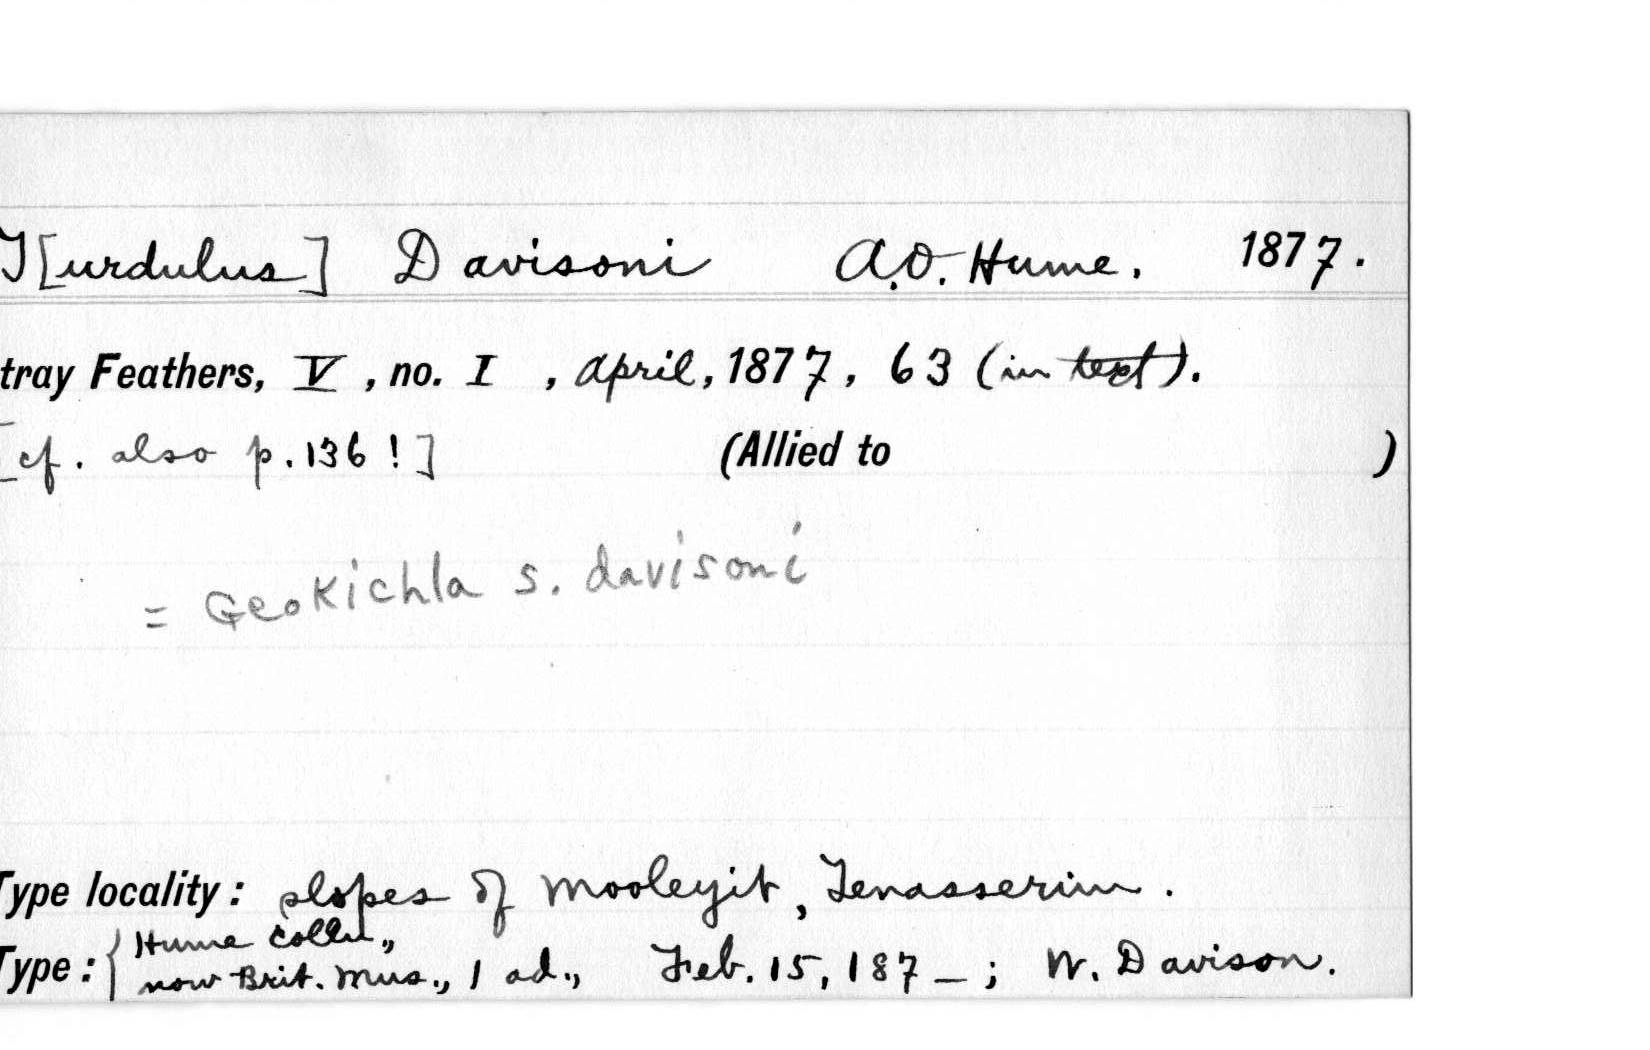 T[urdulus] Davisoni A.O. Hume. 1877.
tray Feathers, V, no. I, April, 1877, 63 (in text).
[cf. also p.136!] (Allied to )
= Geokichla s. davisoni
Type locality: slopes of Mooleyit, Tenasserim.
Hume Colln.,
Type: { now Brit. Mus., 1 ad., Feb. 15, 187_; W. Davison.